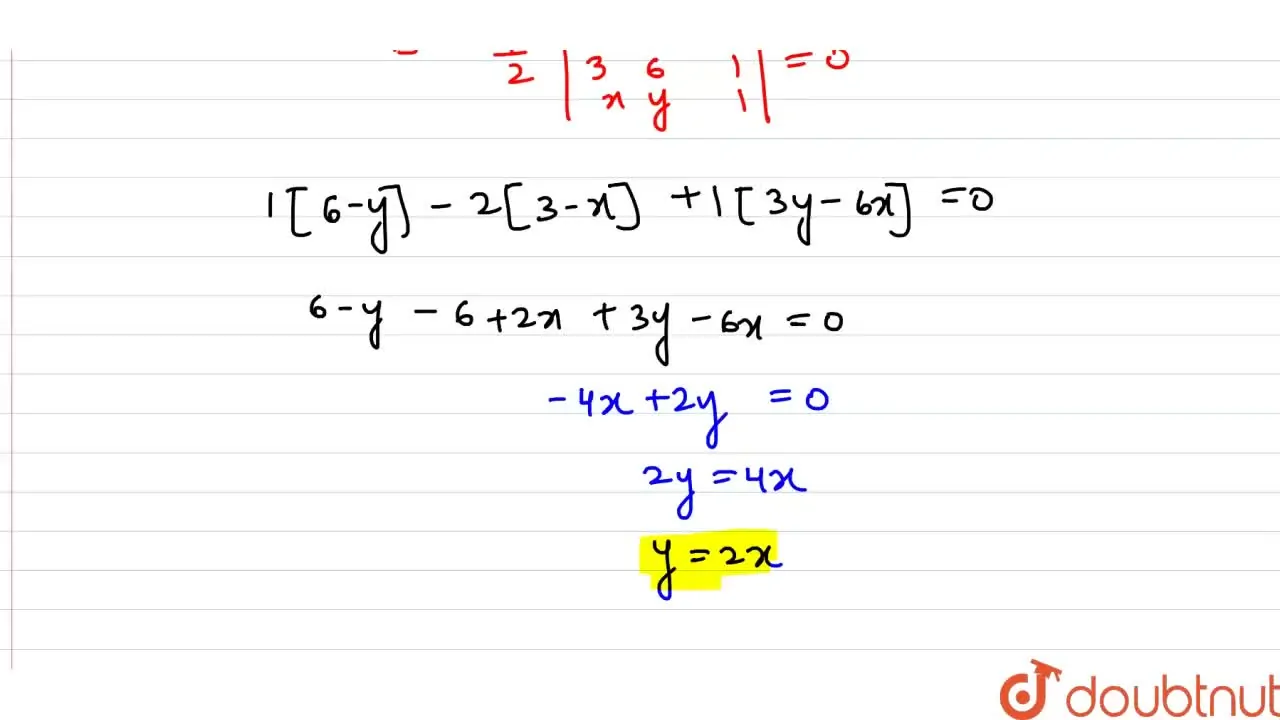 1/2 | 3 6 1 | = 0
| x y 1 |
1[6-y] - 2[3-x] + 1[3y-6x] = 0
6-y - 6 + 2x + 3y - 6x = 0
-4x + 2y = 0
2y = 4x
y = 2x
doubtnut